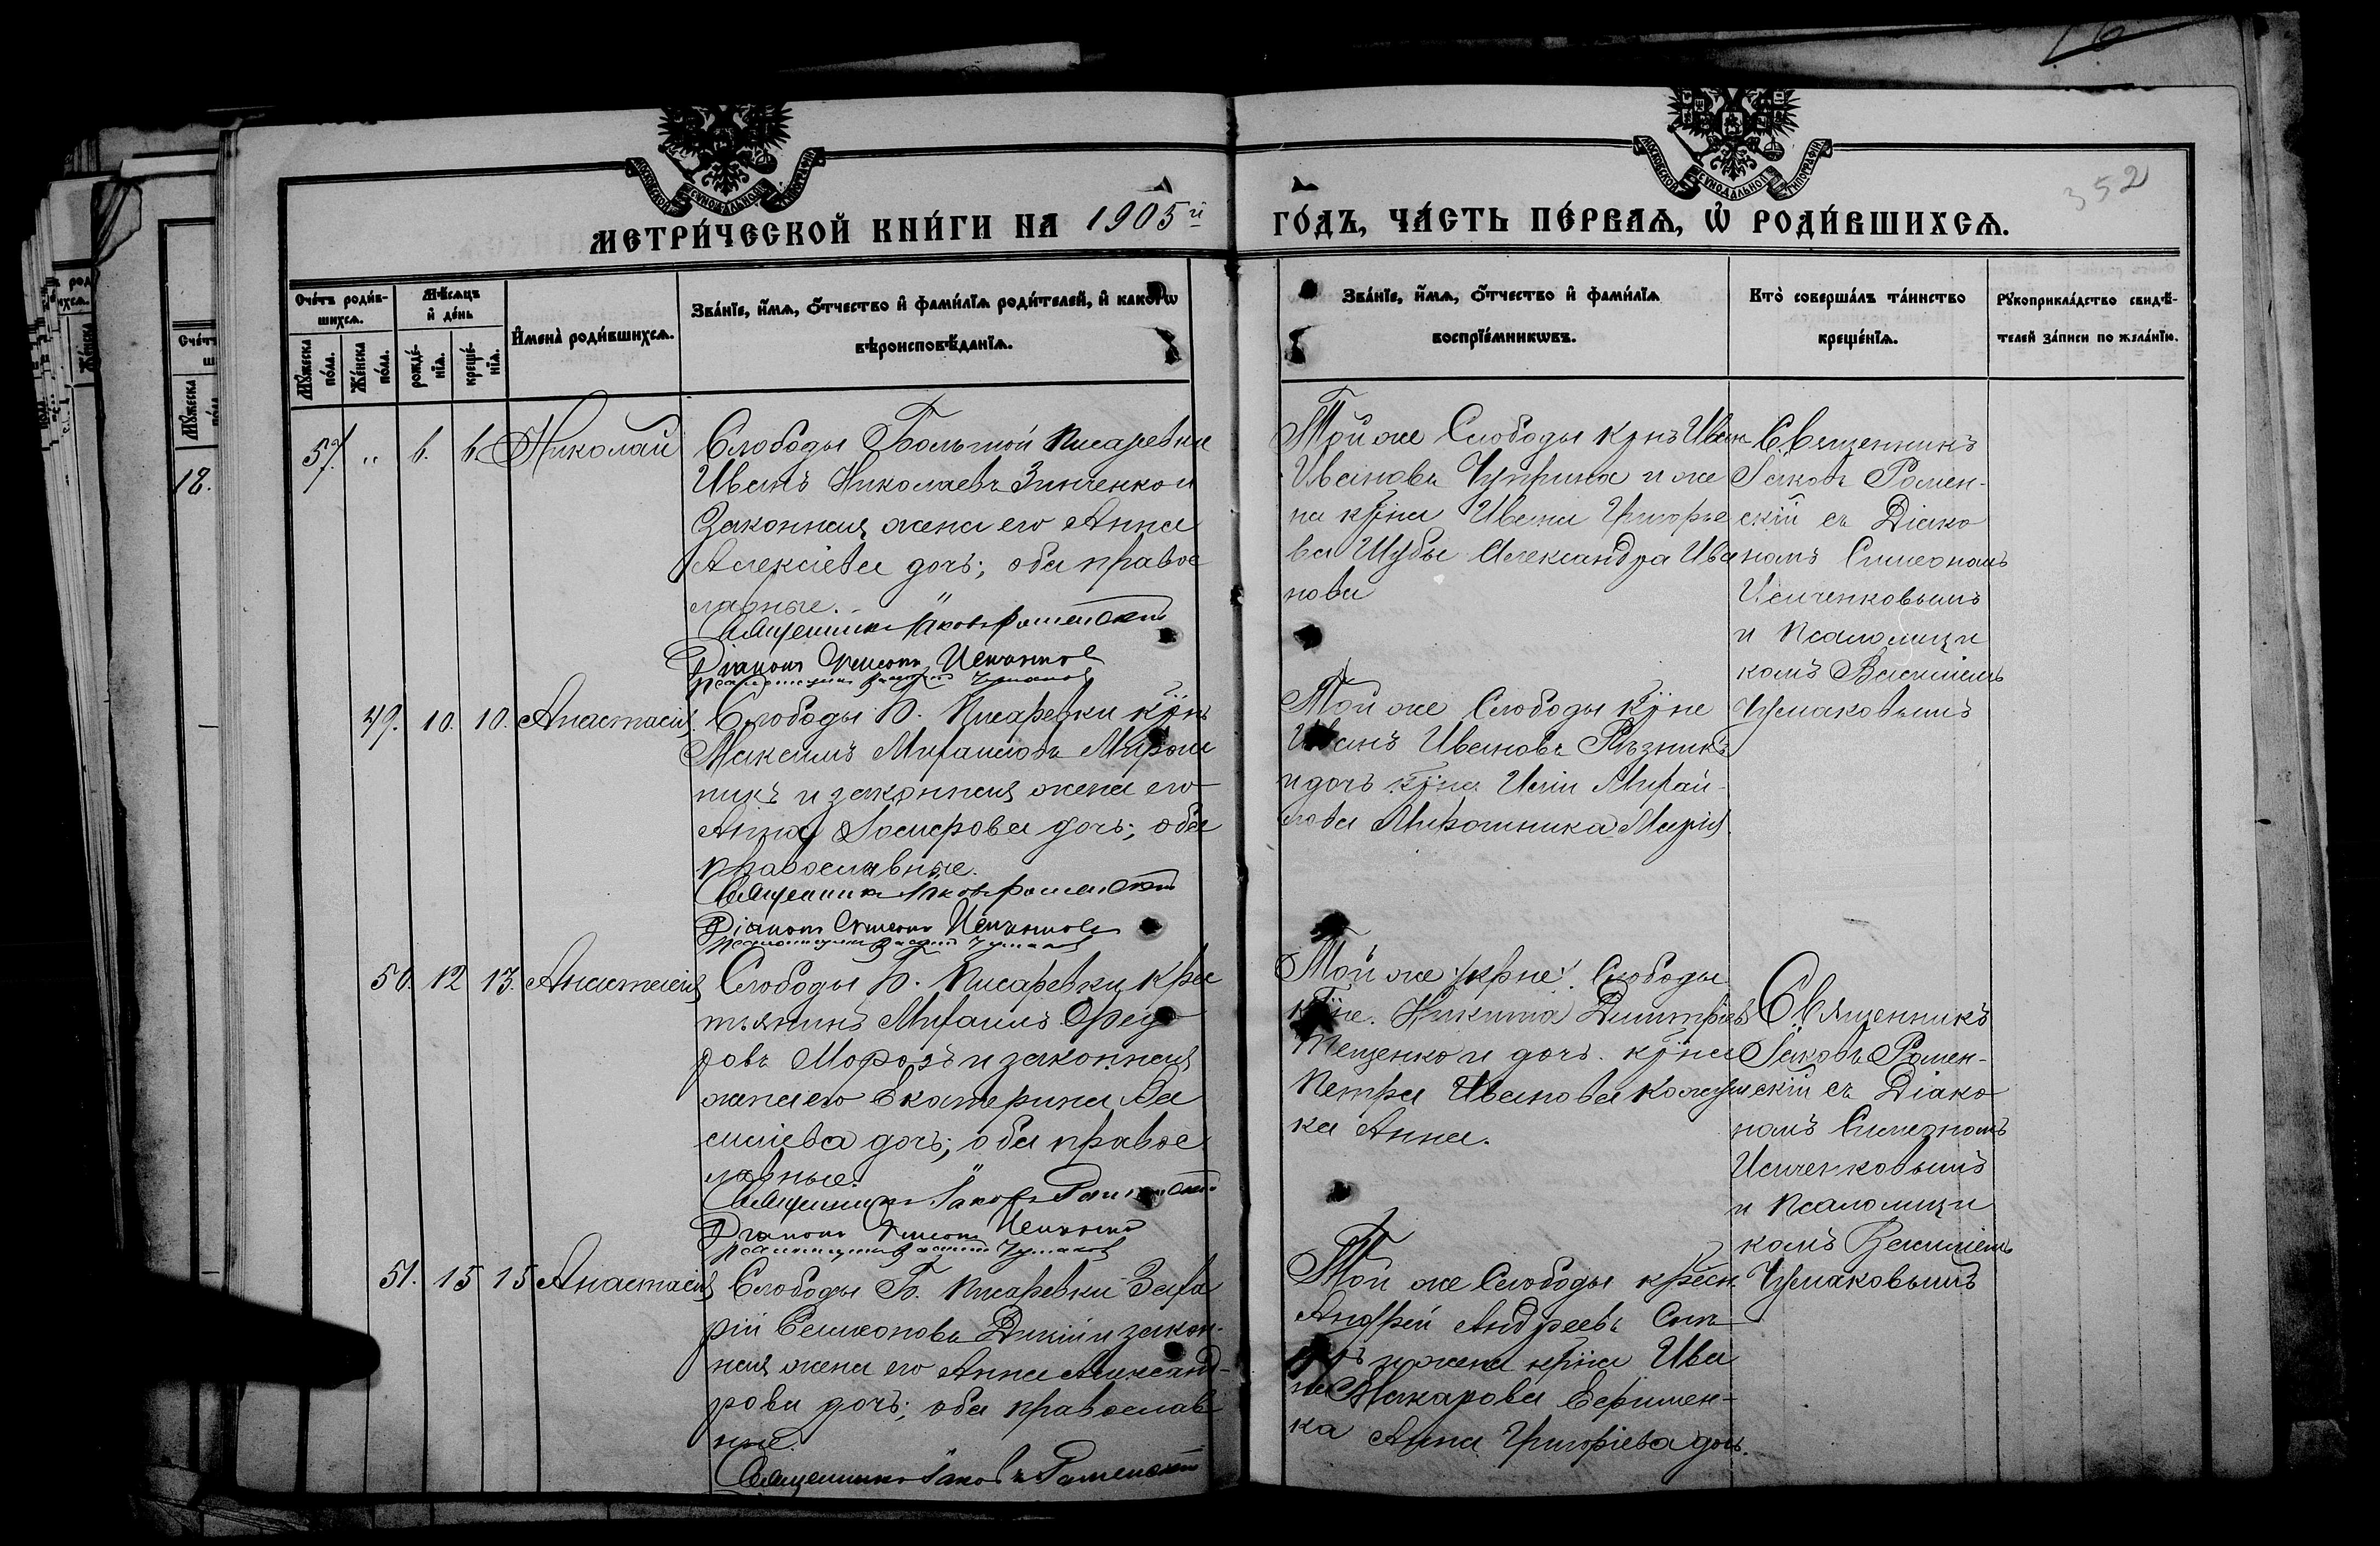 352
МОСКОВСКОЙ СѴНОДАЛЬНОЙ ТИПОГРАФІИ
МОСКОВСКОЙ СѴНОДАЛЬНОЙ ТИПОГРАФІИ
МЕТРИ́ЧЕСКОЙ КНИ́ГИ НА 1905й ГО́ДЪ, ЧА́СТЬ ПЕ́РВАѦ, Ѡ҆ РОДИ́ВШИХСѦ.
Сче́тъ роди́в-
шихсѧ.
Мꙋ́жеска
по́ла.
Же́нска
по́ла.
Мѣ́сѧцъ
и҆ де́нь
рожде́-
нїѧ.
креще́-
нїѧ.
И҆мена̀ роди́вшихсѧ.
Зва́нїе, и҆́мѧ, ѻ҆́тчество и҆ фами́лїѧ роди́телей, и҆ како́гѡ
вѣроисповѣ́данїѧ.
Зва́нїе, и҆́мѧ, ѻ҆́тчество и҆ фами́лїѧ
воспрїе́мникѡвъ.
Кто̀ соверша́лъ та́инство
креще́нїѧ.
Рꙋкоприкла́дство свидѣ́-
телей за́писи по жела́нїю.
18.
57. " 6. 6. Николай
Слободы Большой Писаревки
Иванъ Николаевъ Зинченко и
законная жена его Анна
Алексіева дочь; оба правос
лавные.
Священникъ Іаковъ Роменскій
Діаконъ Симеонъ Исиченковъ
Псаломщикъ Василій Чумаковъ
Той же Слободы крнъ Иван
Ивановъ Чуприна и же
на крна Ивана Григорье
ва Шубы Александра Ива
нова
Священникъ
Іаковъ Ромен-
скій съ Діако
номъ Симеономъ
Исиченковымъ
и Псаломщи
комъ Василіемъ
Чумаковымъ
49. 10. 10. Анастасія
Слободы Б. Писаревки крнъ
Максимъ Михаиловъ Мирош
никъ и законная жена его
Анна дочь; оба
православные.
Священникъ Іаковъ Роменскій
Діаконъ Симеонъ Исиченковъ
Псаломщикъ Василій Чумаковъ
Той же Слободы крне
Иванъ Ивановъ Рѣзникъ
и дочь крна Иліи Михай-
лова Мирошника Марія
50. 12 13. Анастасія
Слободы Б. Писаревки крес
тьянинъ Михаилъ Федо
ровъ Морозъ и законная
жена его Екатерина Ва
силіева дочь; оба правос
лавные.
Священникъ Іаковъ Роменскій
Діаконъ Симеонъ Исиченковъ
Псаломщикъ Василій Чумаковъ
Той же /крне/ Слободы
крне. Никита Димитріевъ
Тещенко и дочь крна
Петра Иванова Кожуш
ка Анна.
Священникъ
Іаковъ Ромен-
скій съ Діако
номъ Симеономъ
Исиченковымъ
и Псаломщи
комъ Василіемъ
Чумаковымъ
51. 15 15 Анастасія
Слободы Б. Писаревки Заха
рій Симеоновъ Дикій и закон-
ная жена его Анна Александ-
рова дочь; оба православ
ные.
Священникъ Іаковъ Роменскій
Той же Слободы крест.
Андрей Андреевъ
и жена крна Ива
на Макарова Ефимен-
ка Анна Григоріева дочь.